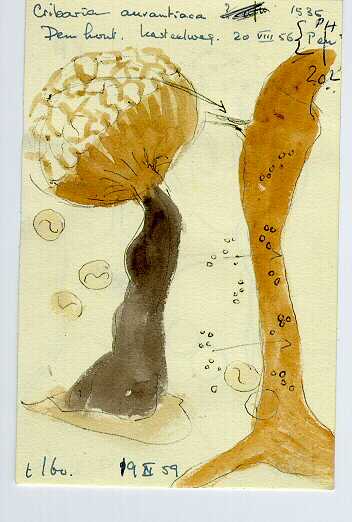 Cribaria aurantiaca 1535
Den hout. Kasteelweg. 20 VIII 56 { PH
Pen
t 160. 19 XI 59